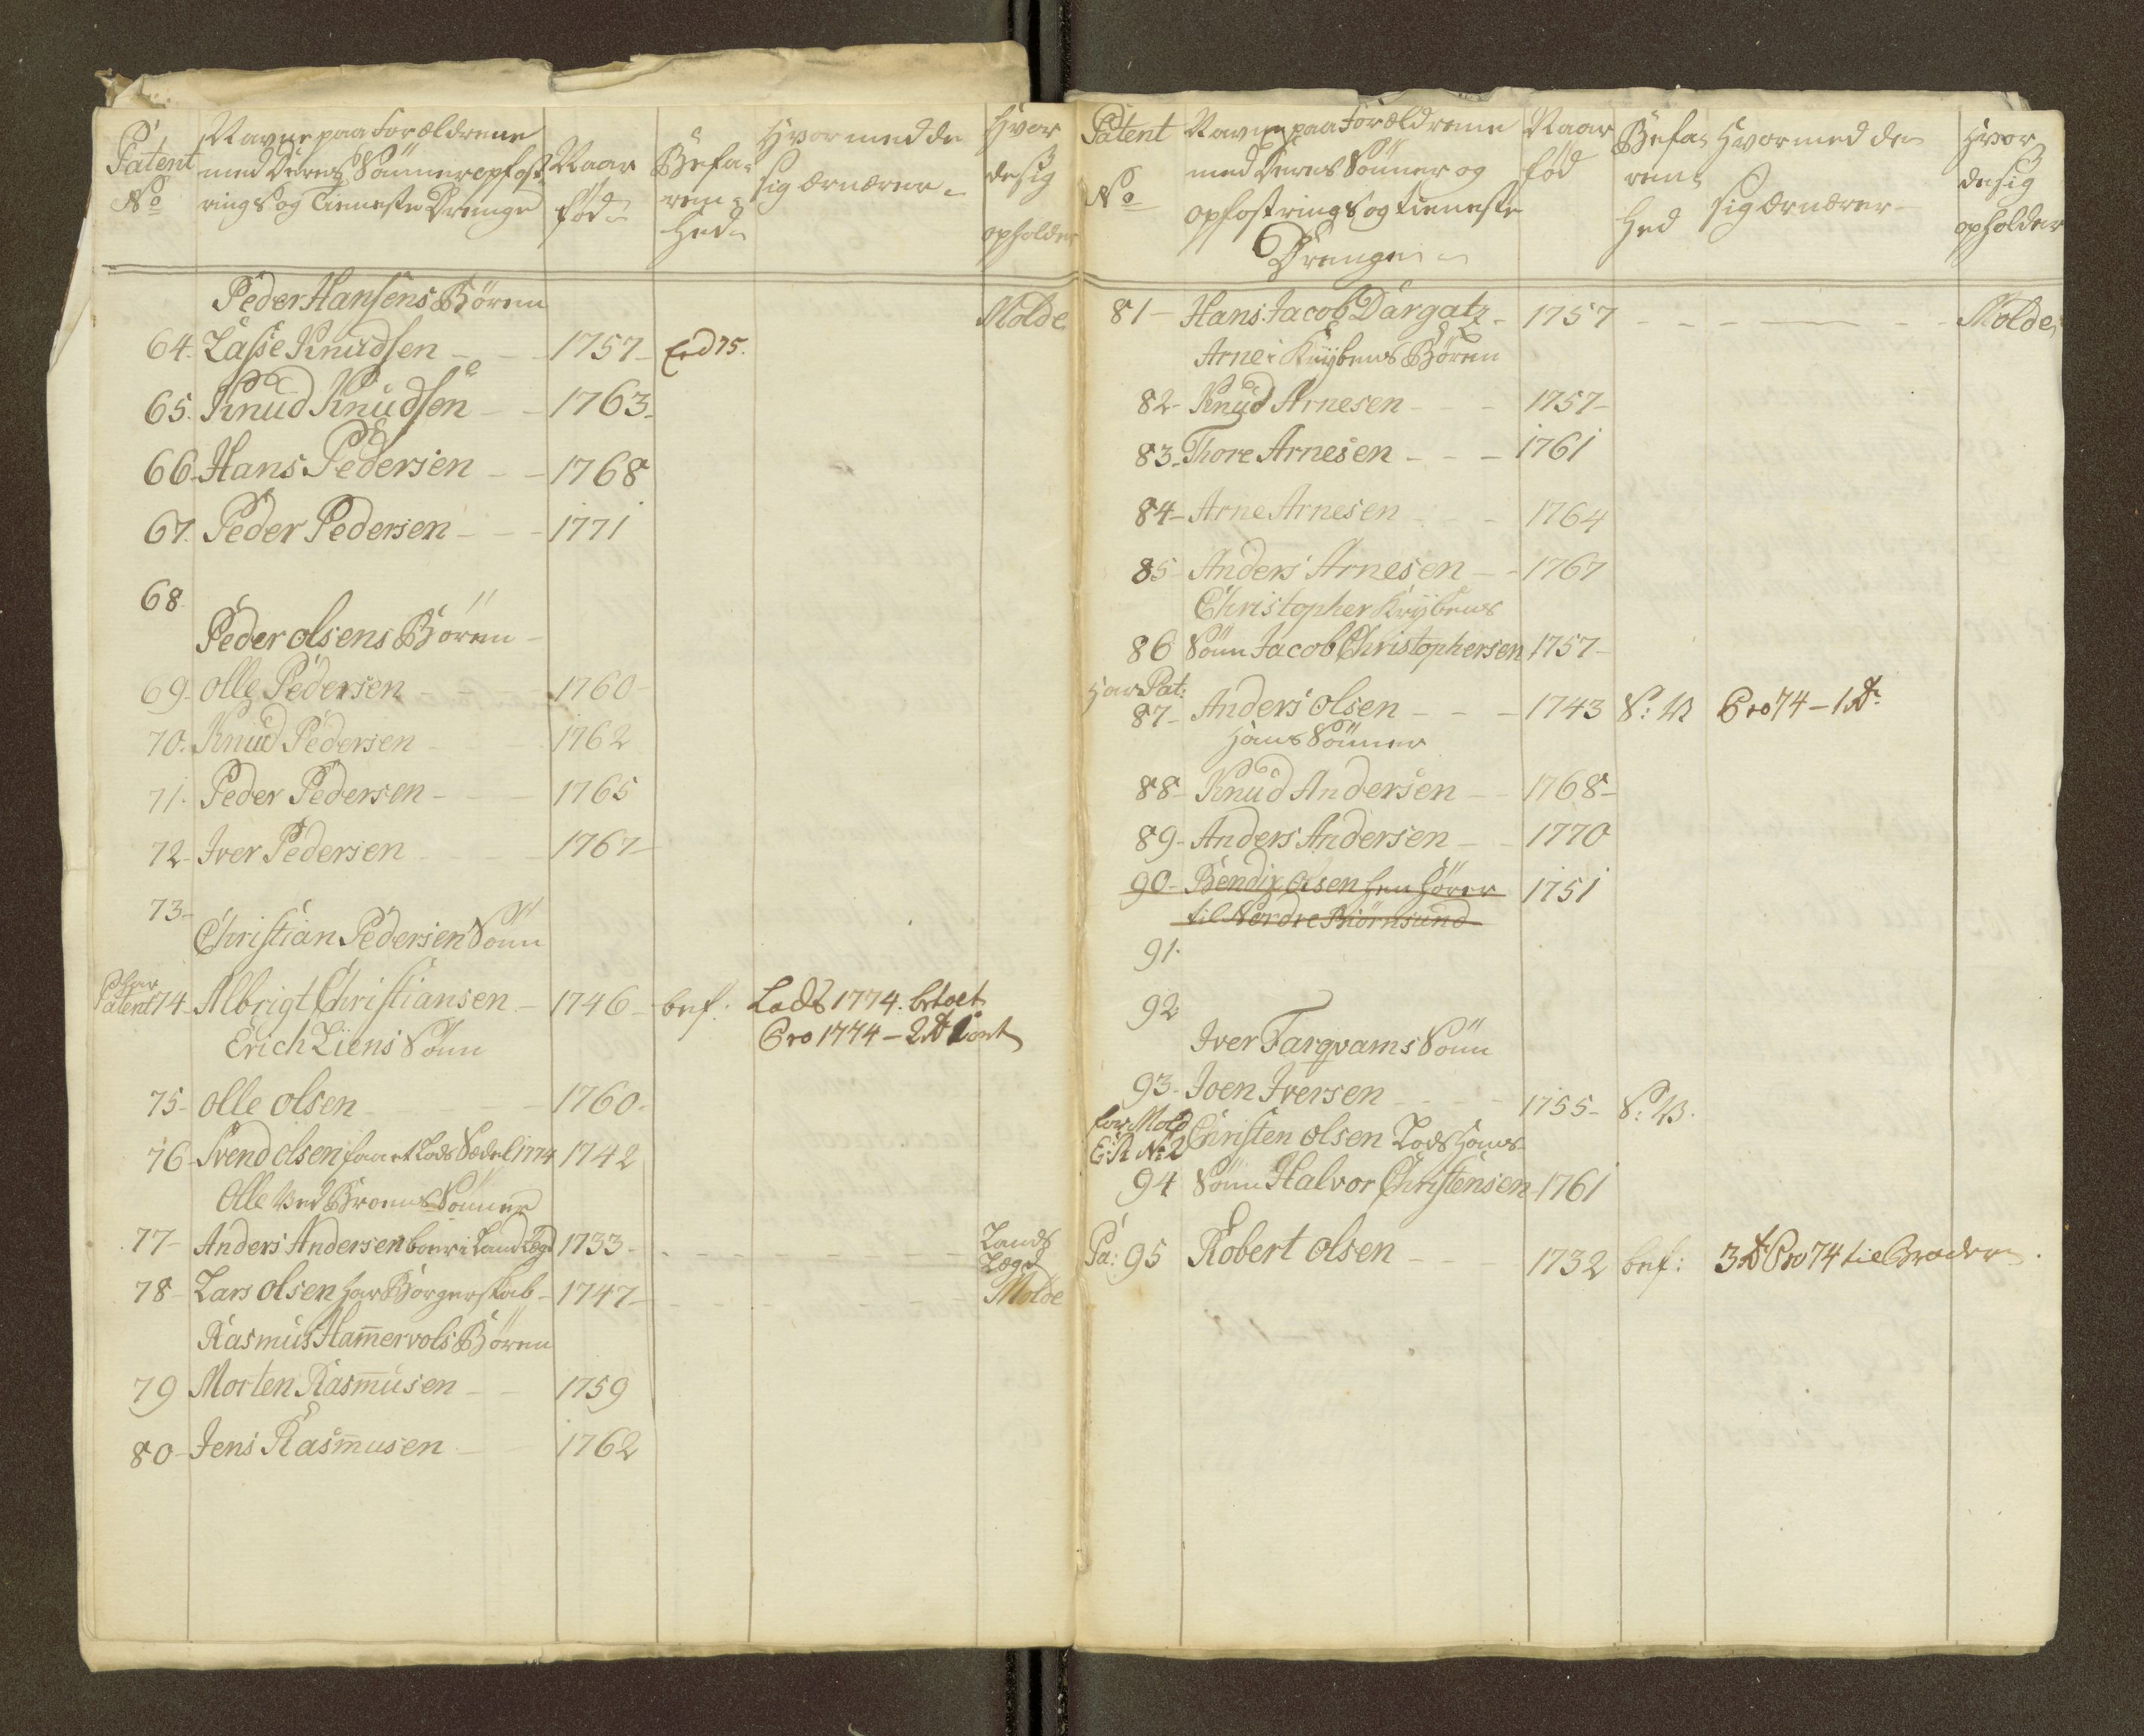 Patent
No
Navne paa Forældrene
med Deres Sönner opfost-
rings og Tieneste Drenge
Naar
fød
Befa-
ren-
hed
Hvormed de
sig ernærer
Hvor
de sig
opholder
Peder Hansens Børen
Molde
64. Lasse Knudsen - - 1757
65. Knud Knudsen - - 1763
66. Hans Pedersen - - 1768
67. Peder Pedersen - - 1771
68.
Peder olsens Børen
69. olle Pedersen - - 1760
70. Knud Pedersen - - 1762
71. Peder Pedersen - - 1765
72. Iver Pedersen - - 1767
73
Christian Pedersen Sönn
har
Patent 74. Albrigt Christiansen - 1746 - bef: Lods 1774.
Pro 1774 - 2
Erich Liens Sönn
75 - olle olsen - - 1760
76 - Svend olsen faaet Lods Sædel 1774 1742
Olle Sönner
77 - Anders Andersen boer i Land Lægd 1733 - - - Lands
Lægd
78 - Lars olsen har Borgerskab - 1747 - - - Molde
Rasmus Hamervols Børen
79 Morten Rasmusen - - 1759
80 - Jens Rasmusen - 1762
Patent
No
Navne paa Forældrene
med Deres Sönner og
opfostrings og tieneste
Drenge
Naar
fød
Befa-
ren-
hed
Hvormed de
sig ernærer
Hvor
de sig
opholder
81 - Hans Jacob Dargatz - 1757 - - - Molde
Arne i Krybens Børen
82 - Knud Arnesen - - 1757
83 - Thore Arnesen - - 1761
84 - Arne Arnesen - 1764
85 - Anders Arnesen - - 1767
Christopher Krybens
86 Sönn Jacob Christophersen 1757
har Pat:
87 - Anders olsen - - - 1743 Pro 74 - 1
Hans Sönner
88 - Knud Andersen - - 1768
89 - Anders Andersen - - 1770
90 - Bendix olsen hen hører 1751
til Nordre Biørnsund
91.
92
Iver Farqvams Sönn
93. Joen Iversen - - - 1755
Mold
E: R No 2 Christen olsen Lods Hans
94 Sönn Halvor Christensen - 1761
Pa: 95 Robert olsen - - - 1732 bef: 3 Pro 74 til